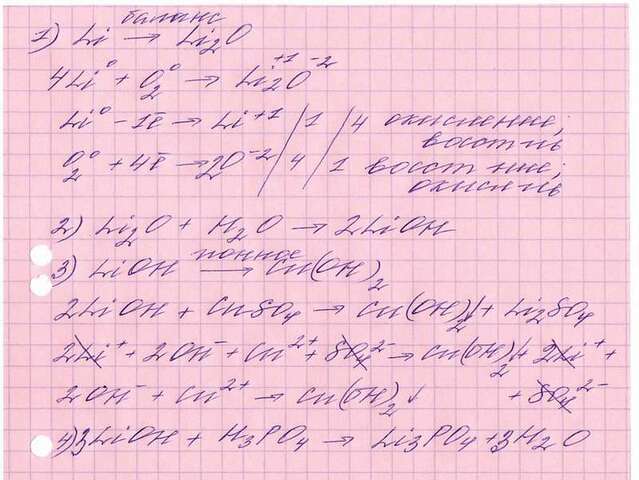 баланс
1) Li → Li₂O
4Li⁰ + O₂⁰ → Li₂⁺¹O⁻²
Li⁰ - 1ē → Li⁺¹ / 1 / 4 окисление;
восст-ль
O₂⁰ + 4ē → 2O⁻² / 4 / 1 восст-ние;
окисл-ль
2) Li₂O + H₂O → 2LiOH
ионное
3) LiOH → Cu(OH)₂
2LiOH + CuSO₄ → Cu(OH)₂↓ + Li₂SO₄
2Li⁺ + 2OH⁻ + Cu²⁺ + SO₄²⁻ → Cu(OH)₂↓ + 2Li⁺ +
2OH⁻ + Cu²⁺ → Cu(OH)₂↓ + SO₄²⁻
4) 3LiOH + H₃PO₄ → Li₃PO₄ + 3H₂O